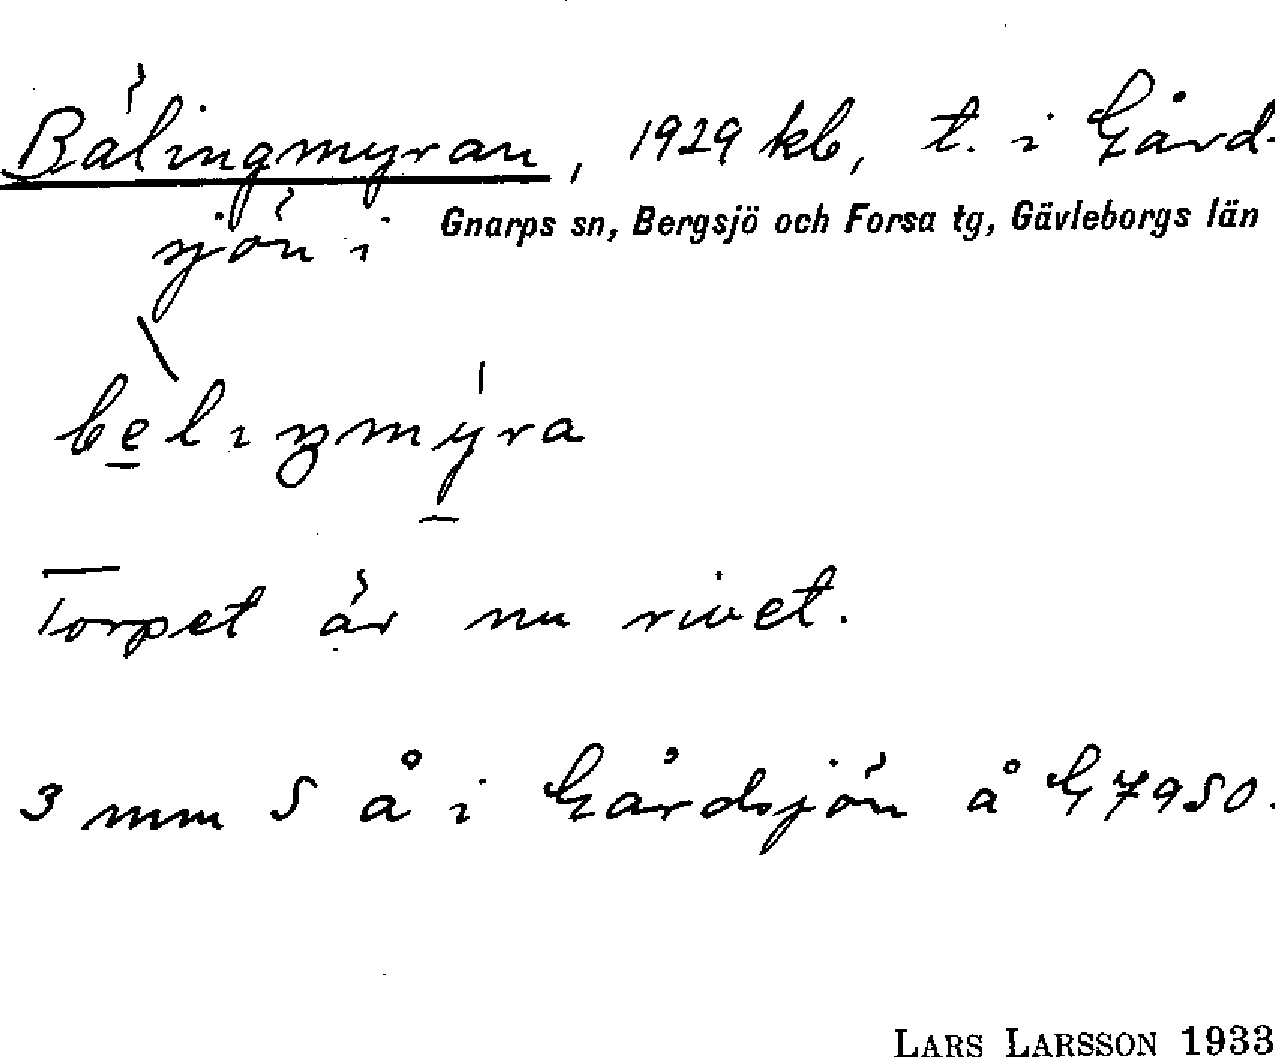 Bälingmyran, 1929 kb, t. i Gård-
sjön i Gnarps sn, Bergsjö och Forsa tg, Gävleborgs län
Torpet är nu rivet.
3 mm S å i Gårdsjön å G 7950.
LARS LARSSON 1933